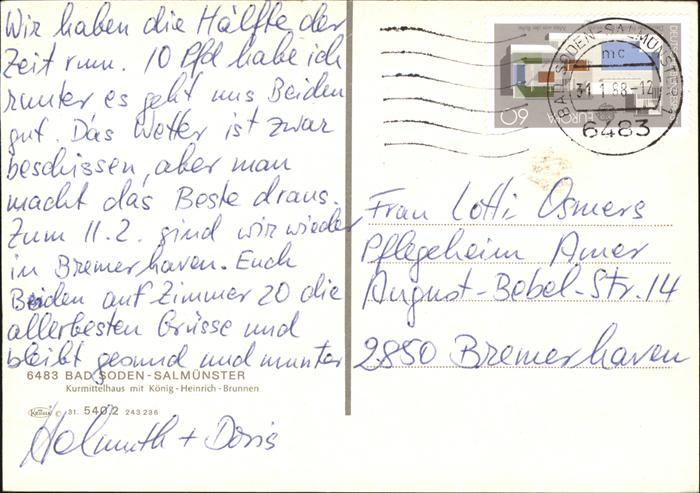 Wir haben die Hälfte der
Zeit rum. 10 Pfd habe ich
runter es geht uns Beiden
gut. Das Wetter ist zwar
beschissen, aber man
macht das Beste draus.
Zum 11.2. sind wir wieder
in Bremerhaven. Euch
Beiden auf Zimmer 20 die
allerbesten Grüsse und
bleibt gesund und munter
6483 BAD SODEN-SALMÜNSTER
Kurmittelhaus mit König-Heinrich-Brunnen
© 31. 540/2 243 236
Helmuth + Doris
60 EUROPA
BAD SODEN-SALMÜNSTER
mc
31.1.88-14
6483
Frau Lotti Osmers
Pflegeheim Amer
August-Bebel-Str. 14
2850 Bremerhaven